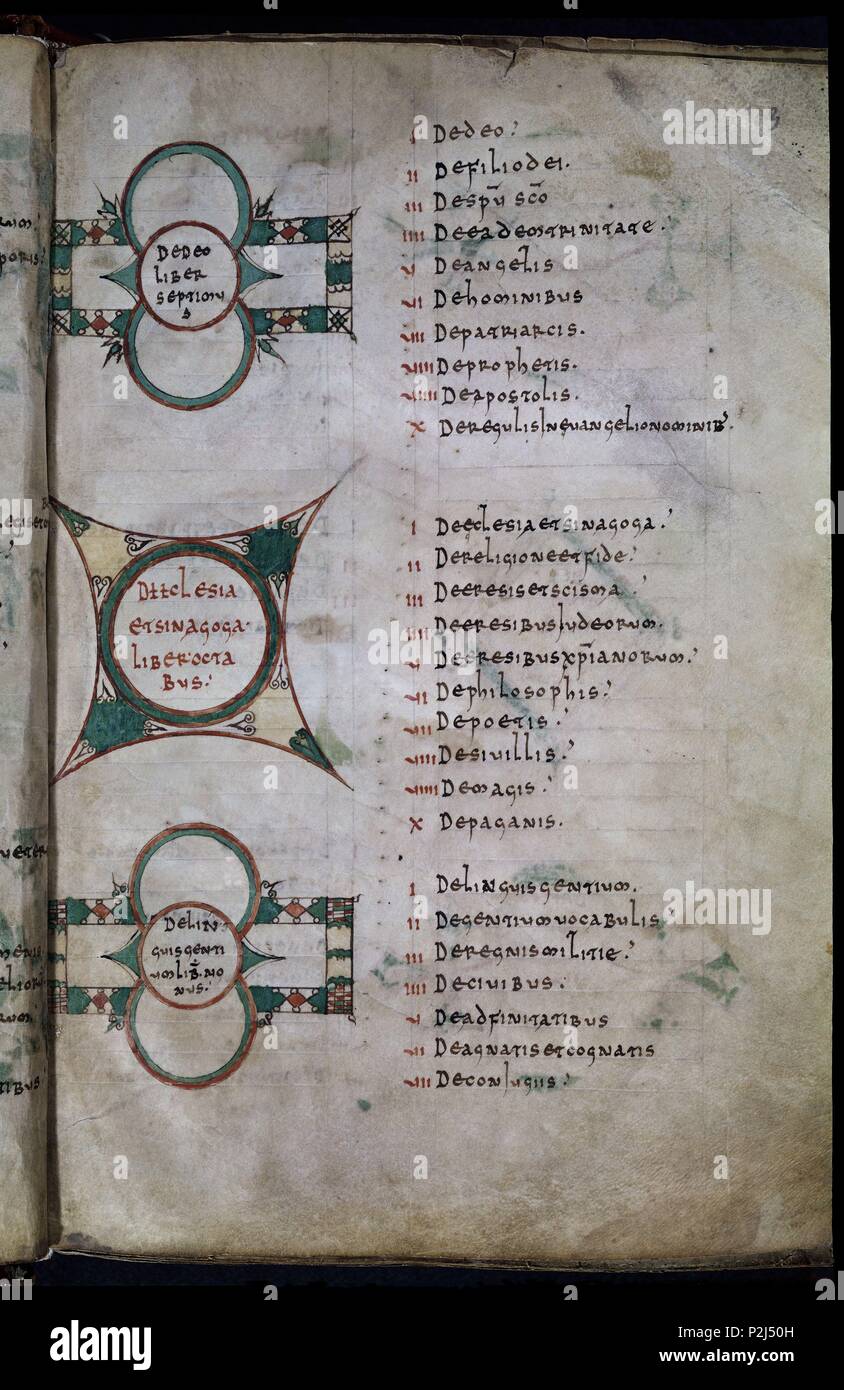 DEDEO
LIBER
SEPTIMU
S
I DEDEO.
II DEFILIODEI.
III DESPU SCO
IIII DEEADEMTRINITATE.
V DEANGELIS
VI DEHOMINIBUS
VIII DEPATRIARCIS.
VIIII DEPROPHETIS.
VIIII DEAPOSTOLIS.
X DEREGULISINEUANGELIONOMINIB
DEECLESIA
ETSINAGOGA.
LIBER.OCTA
BUS.
I DEECLESIAETSINAGOGA.
II DERELIGIONEETFIDE.
III DEERESISETSCISMA.
IIII DEERESIBUSIUDEORUM.
V DEERESIBUSXPIANORUM.
VI DEPHILOSOPHIS.
VII DEPOETIS.
VIII DESIVILLIS.
VIIII DEMAGIS.
X DEPAGANIS.
DELIN
GUISGENTI
UMLIB.NO
NUS.
I DELINGUISGENTIUM.
II DEGENTIUMUOCABULIS
III DEREGNISMILITIE.
IIII DECIVIBUS.
V DEADFINITATIBUS
VI DEAGNATISETCOGNATIS
VII DECONIUGIIS.
alamy
Image ID: P2J50H
www.alamy.com